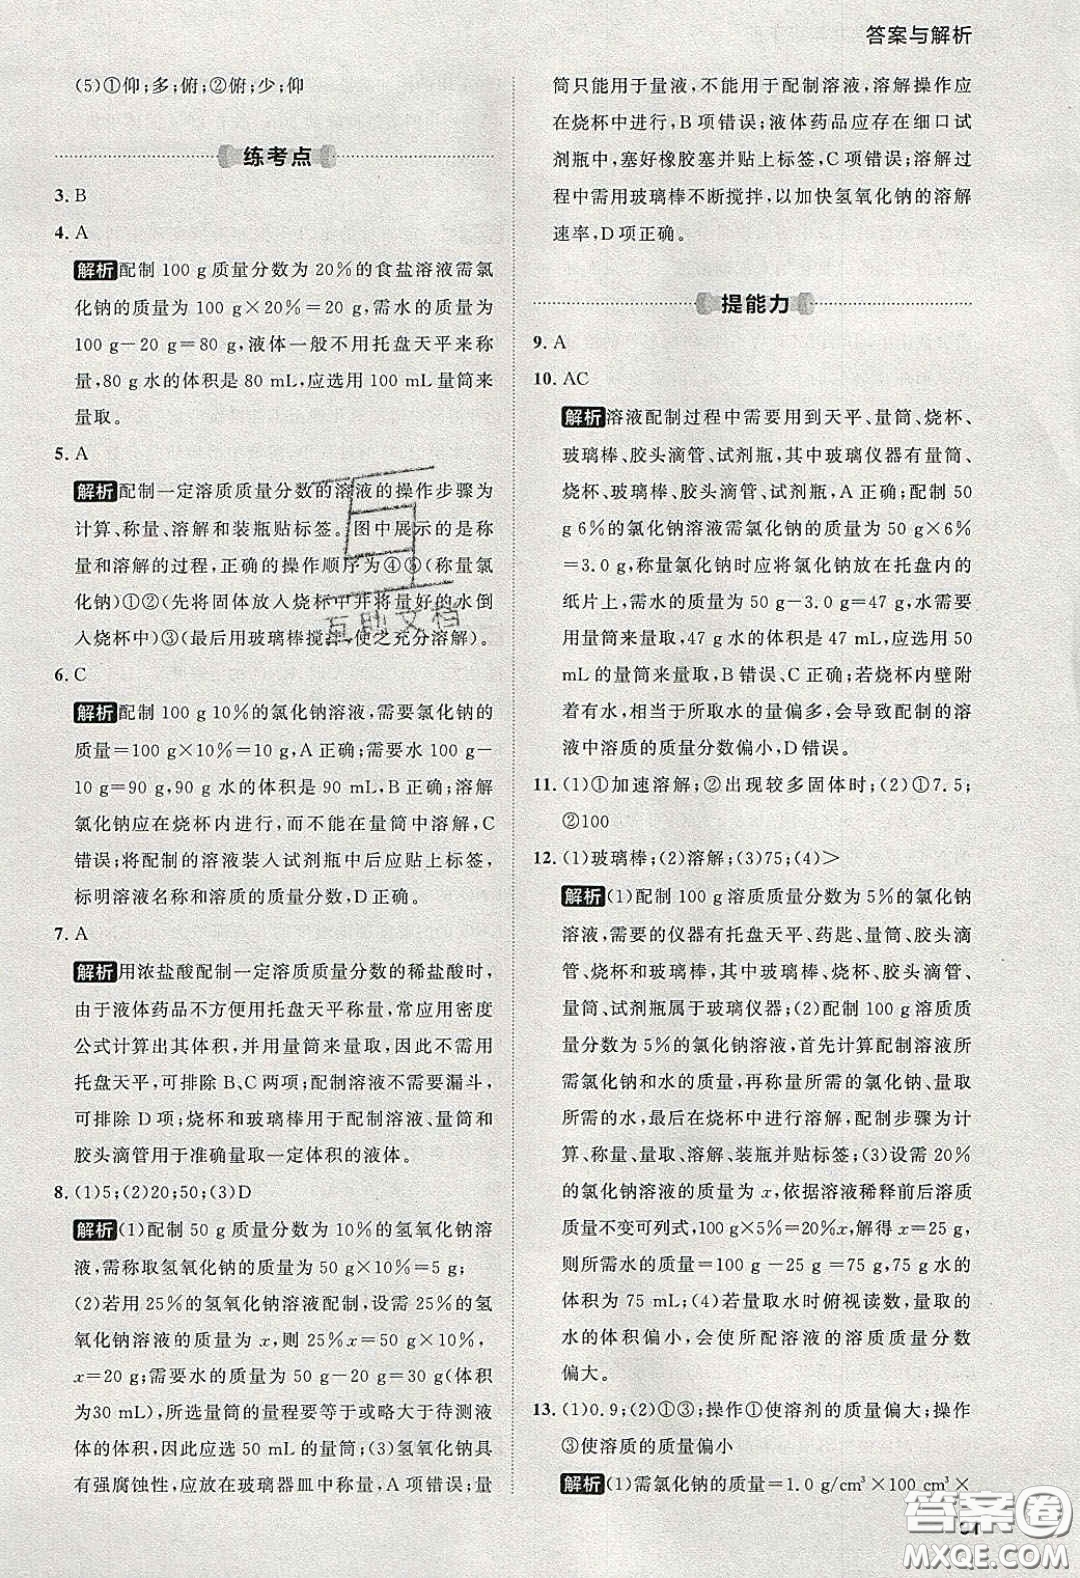 答案与解析
(5)①仰;多;俯;②俯;少;仰
练考点
3. B
4. A
解析 配制 100 g 质量分数为 20%的食盐溶液需氯
化钠的质量为 100 g×20%=20 g,需水的质量为
100 g-20 g=80 g,液体一般不用托盘天平来称
量,80 g 水的体积是 80 mL,应选用 100 mL 量筒来
量取。
5. A
解析 配制一定溶质质量分数的溶液的操作步骤为
计算、称量、溶解和装瓶贴标签。图中展示的是称
量和溶解的过程,正确的操作顺序为④⑤(称量氯
化钠)①②(先将固体放入烧杯中并将量好的水倒
入烧杯中)③(最后用玻璃棒搅拌,使之充分溶解)。
6. C
解析 配制 100 g 10%的氯化钠溶液,需要氯化钠的
质量=100 g×10%=10 g,A 正确;需要水 100 g-
10 g=90 g,90 g 水的体积是 90 mL,B 正确;溶解
氯化钠应在烧杯内进行,而不能在量筒中溶解,C
错误;将配制的溶液装入试剂瓶中后应贴上标签,
标明溶液名称和溶质的质量分数,D 正确。
7. A
解析 用浓盐酸配制一定溶质质量分数的稀盐酸时,
由于液体药品不方便用托盘天平称量,常应用密度
公式计算出其体积,并用量筒来量取,因此不需用
托盘天平,可排除 B、C 两项;配制溶液不需要漏斗,
可排除 D 项;烧杯和玻璃棒用于配制溶液,量筒和
胶头滴管用于准确量取一定体积的液体。
8. (1)5;(2)20;50;(3)D
解析 (1)配制 50 g 质量分数为 10%的氢氧化钠溶
液,需称取氢氧化钠的质量为 50 g×10%=5 g;
(2)若用 25%的氢氧化钠溶液配制,设需 25%的氢
氧化钠溶液的质量为 x,则 25%x=50 g×10%,
x=20 g;需要水的质量为 50 g-20 g=30 g(体积
为30 mL),所选量筒的量程要等于或略大于待测液
体的体积,因此应选 50 mL 的量筒;(3)氢氧化钠具
有强腐蚀性,应放在玻璃器皿中称量,A 项错误;量
筒只能用于量液,不能用于配制溶液,溶解操作应
在烧杯中进行,B 项错误;液体药品应存在细口试
剂瓶中,塞好橡胶塞并贴上标签,C 项错误;溶解过
程中需用玻璃棒不断搅拌,以加快氢氧化钠的溶解
速率,D 项正确。
提能力
9. A
10. AC
解析 溶液配制过程中需要用到天平、量筒、烧杯、
玻璃棒、胶头滴管、试剂瓶,其中玻璃仪器有量筒、
烧杯、玻璃棒、胶头滴管、试剂瓶,A 正确;配制 50
g 6%的氯化钠溶液需氯化钠的质量为 50 g×6%
=3.0 g,称量氯化钠时应将氯化钠放在托盘内的
纸片上,需水的质量为 50 g-3.0 g=47 g,水需要
用量筒来量取,47 g 水的体积是 47 mL,应选用 50
mL 的量筒来量取,B 错误、C 正确;若烧杯内壁附
着有水,相当于所取水的量偏多,会导致配制的溶
液中溶质的质量分数偏小,D 错误。
11. (1)①加速溶解;②出现较多固体时;(2)①7.5;
②100
12. (1)玻璃棒;(2)溶解;(3)75;(4)>
解析 (1)配制 100 g 溶质质量分数为 5%的氯化钠
溶液,需要的仪器有托盘天平、药匙、量筒、胶头滴
管、烧杯和玻璃棒,其中玻璃棒、烧杯、胶头滴管、
量筒、试剂瓶属于玻璃仪器;(2)配制 100 g 溶质质
量分数为 5%的氯化钠溶液,首先计算配制溶液所
需氯化钠和水的质量,再称量所需的氯化钠、量取
所需的水,最后在烧杯中进行溶解,配制步骤为计
算、称量、量取、溶解、装瓶并贴标签;(3)设需 20%
的氯化钠溶液的质量为 x,依据溶液稀释前后溶质
质量不变可列式,100 g×5%=20%x,解得 x=25 g,
则所需水的质量=100 g -25 g =75 g,所需水的
体积为 75 mL;(4)若量取水时俯视读数,量取的
水的体积偏小,会使所配溶液的溶质质量分数
偏大。
13. (1)0.9;(2)①③;操作①使溶剂的质量偏大;操作
③使溶质的质量偏小
解析 (1)需氯化钠的质量=1.0 g/cm³×100 cm³×
互助文档
答案圈
MXQE.COM